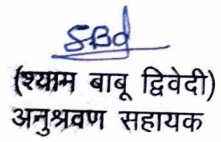 (श्याम बाबू द्विवेदी)
अनुश्रवण सहायक